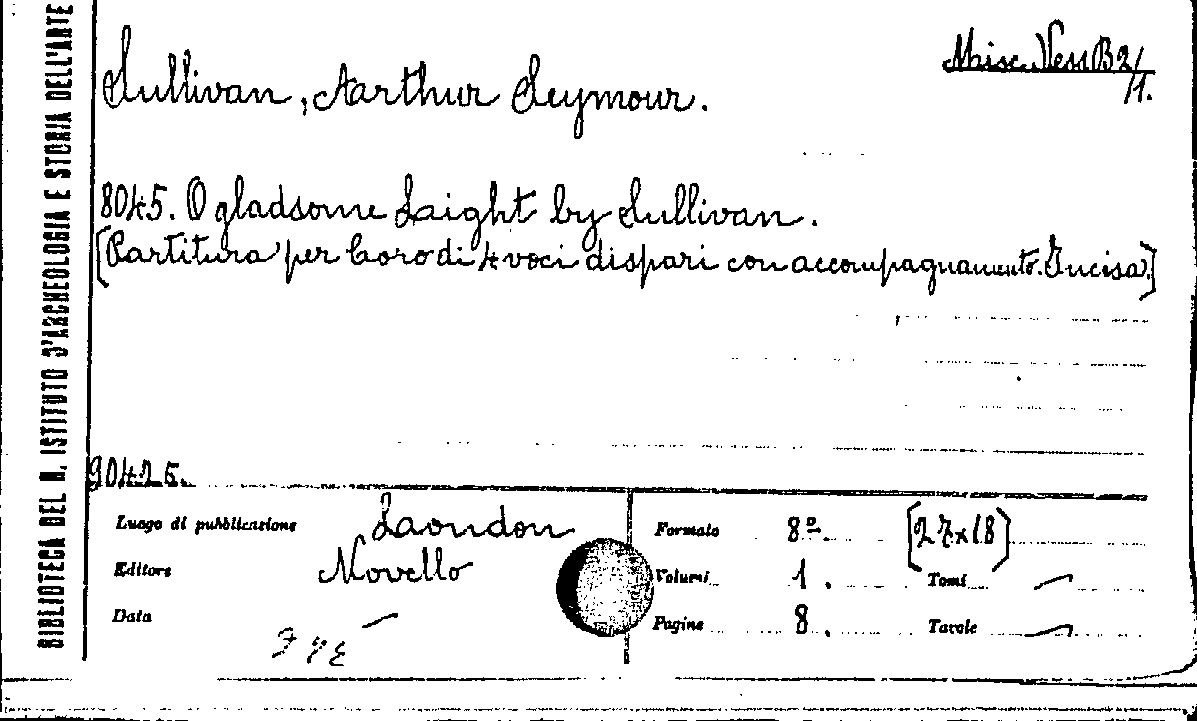 BIBLIOTECA DEL R. ISTITUTO D'ARCHEOLOGIA E STORIA DELL'ARTE
Misc. Vess B2/1.
Sullivan, Arthur Seymour.
8045. O gladsome Light by Sullivan.
[Partitura per Coro di 4 voci dispari con accompagnamento. Incisa.]
90425.
Luogo di pubblicazione London
Editore Novello
Data —
Formato 8º. [27x18]
Volumi 1. Tomi —
Pagine 8. Tavole —